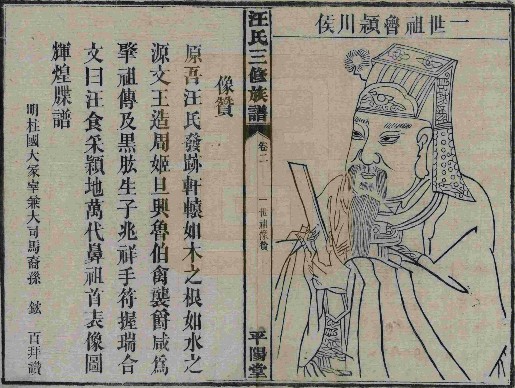 一世祖魯潁川侯
汪氏三修族譜
卷二
一世祖像贊
平陽堂
像贊
原吾汪氏發跡軒轅如木之根如水之
源文王造周姬旦興魯伯禽襲爵咸爲
肇祖傳及黑肱生子兆祥手符握瑞合
文曰汪食采潁地萬代鼻祖首表像圖
輝煌牒譜
明柱國大冢宰兼大司馬裔孫 鋐 百拜讚